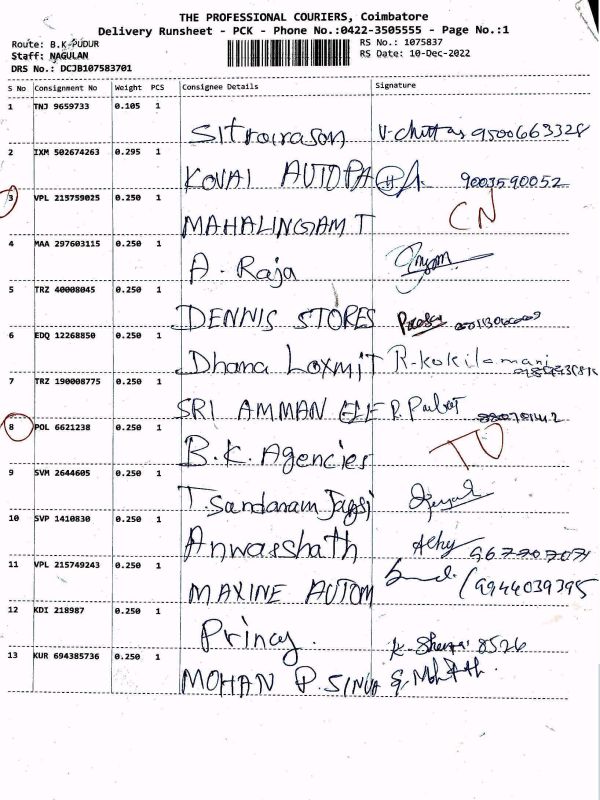 THE PROFESSIONAL COURIERS, Coimbatore
Delivery Runsheet - PCK - Phone No.:0422-3505555 - Page No.:1
Route: B.K-PUDUR
Staff: NAGULAN
DRS No.: DCJB107583701
RS No.: 1075837
RS Date: 10-Dec-2022
S No Consignment No Weight PCS Consignee Details Signature
1 TNJ 9659733 0.105 1
V. 9500663328
2 IXM 502674263 0.295 1
KOVAI AUTOPA 9003590052
3 VPL 215759025 0.250 1
MAHALINGAM T CN
4 MAA 297603115 0.250 1
A. Raja
5 TRZ 40008045 0.250 1
DENNIS STORES
6 EDQ 12268850 0.250 1
Dhana Laxmi T R-kokilamani
7 TRZ 190008775 0.250 1
SRI AMMAN ELE P.
8 POL 6621238 0.250 1
B.K. Agencies
9 SVM 2644605 0.250 1
T. Sandanam
10 SVP 1410830 0.250 1
Anwarshath
11 VPL 215749243 0.250 1
MAXINE AUTOM 9944039395
12 KDI 218987 0.250 1
Princy. 8526
13 KUR 694385736 0.250 1
MOHAN P.